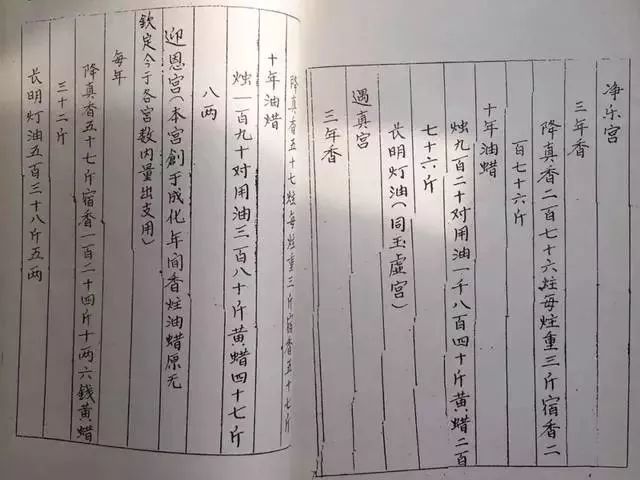 净乐宫
三年香
降真香二百七十六炷每炷重三斤宿香二
百七十六斤
十年油蜡
烛九百二十对用油一千八百四十斤黄蜡二百
七十六斤
长明灯油(同玉虚宫)
遇真宫
三年香
降真香五十七炷每炷重三斤宿香五十七斤
十年油蜡
烛一百九十对用油三百八十斤黄蜡四十七斤
八两
迎恩宫(本宫創于成化年間香炷油蜡原无
钦定今于各宫数内量出支用)
每年
降真香五十七斤宿香一百二十四斤十两六錢黄蜡
三十二斤
长明灯油五百三十八斤五两